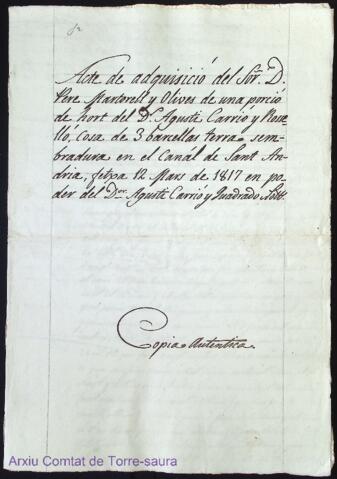 Acte de adquisició del Sor. D.
Pere Martorell y Olives de una porció
de hort del Dr. Agustí Carrió y Rose-
lló, cosa de 3 barcellas terra sem-
bradura en el Canal de Sant An-
dria, fetxa 12 Mars de 1817 en po-
der del Dor. Agustí Carrió y Quadrado Nott.
Copia Autentica.
Arxiu Comtat de Torre-saura